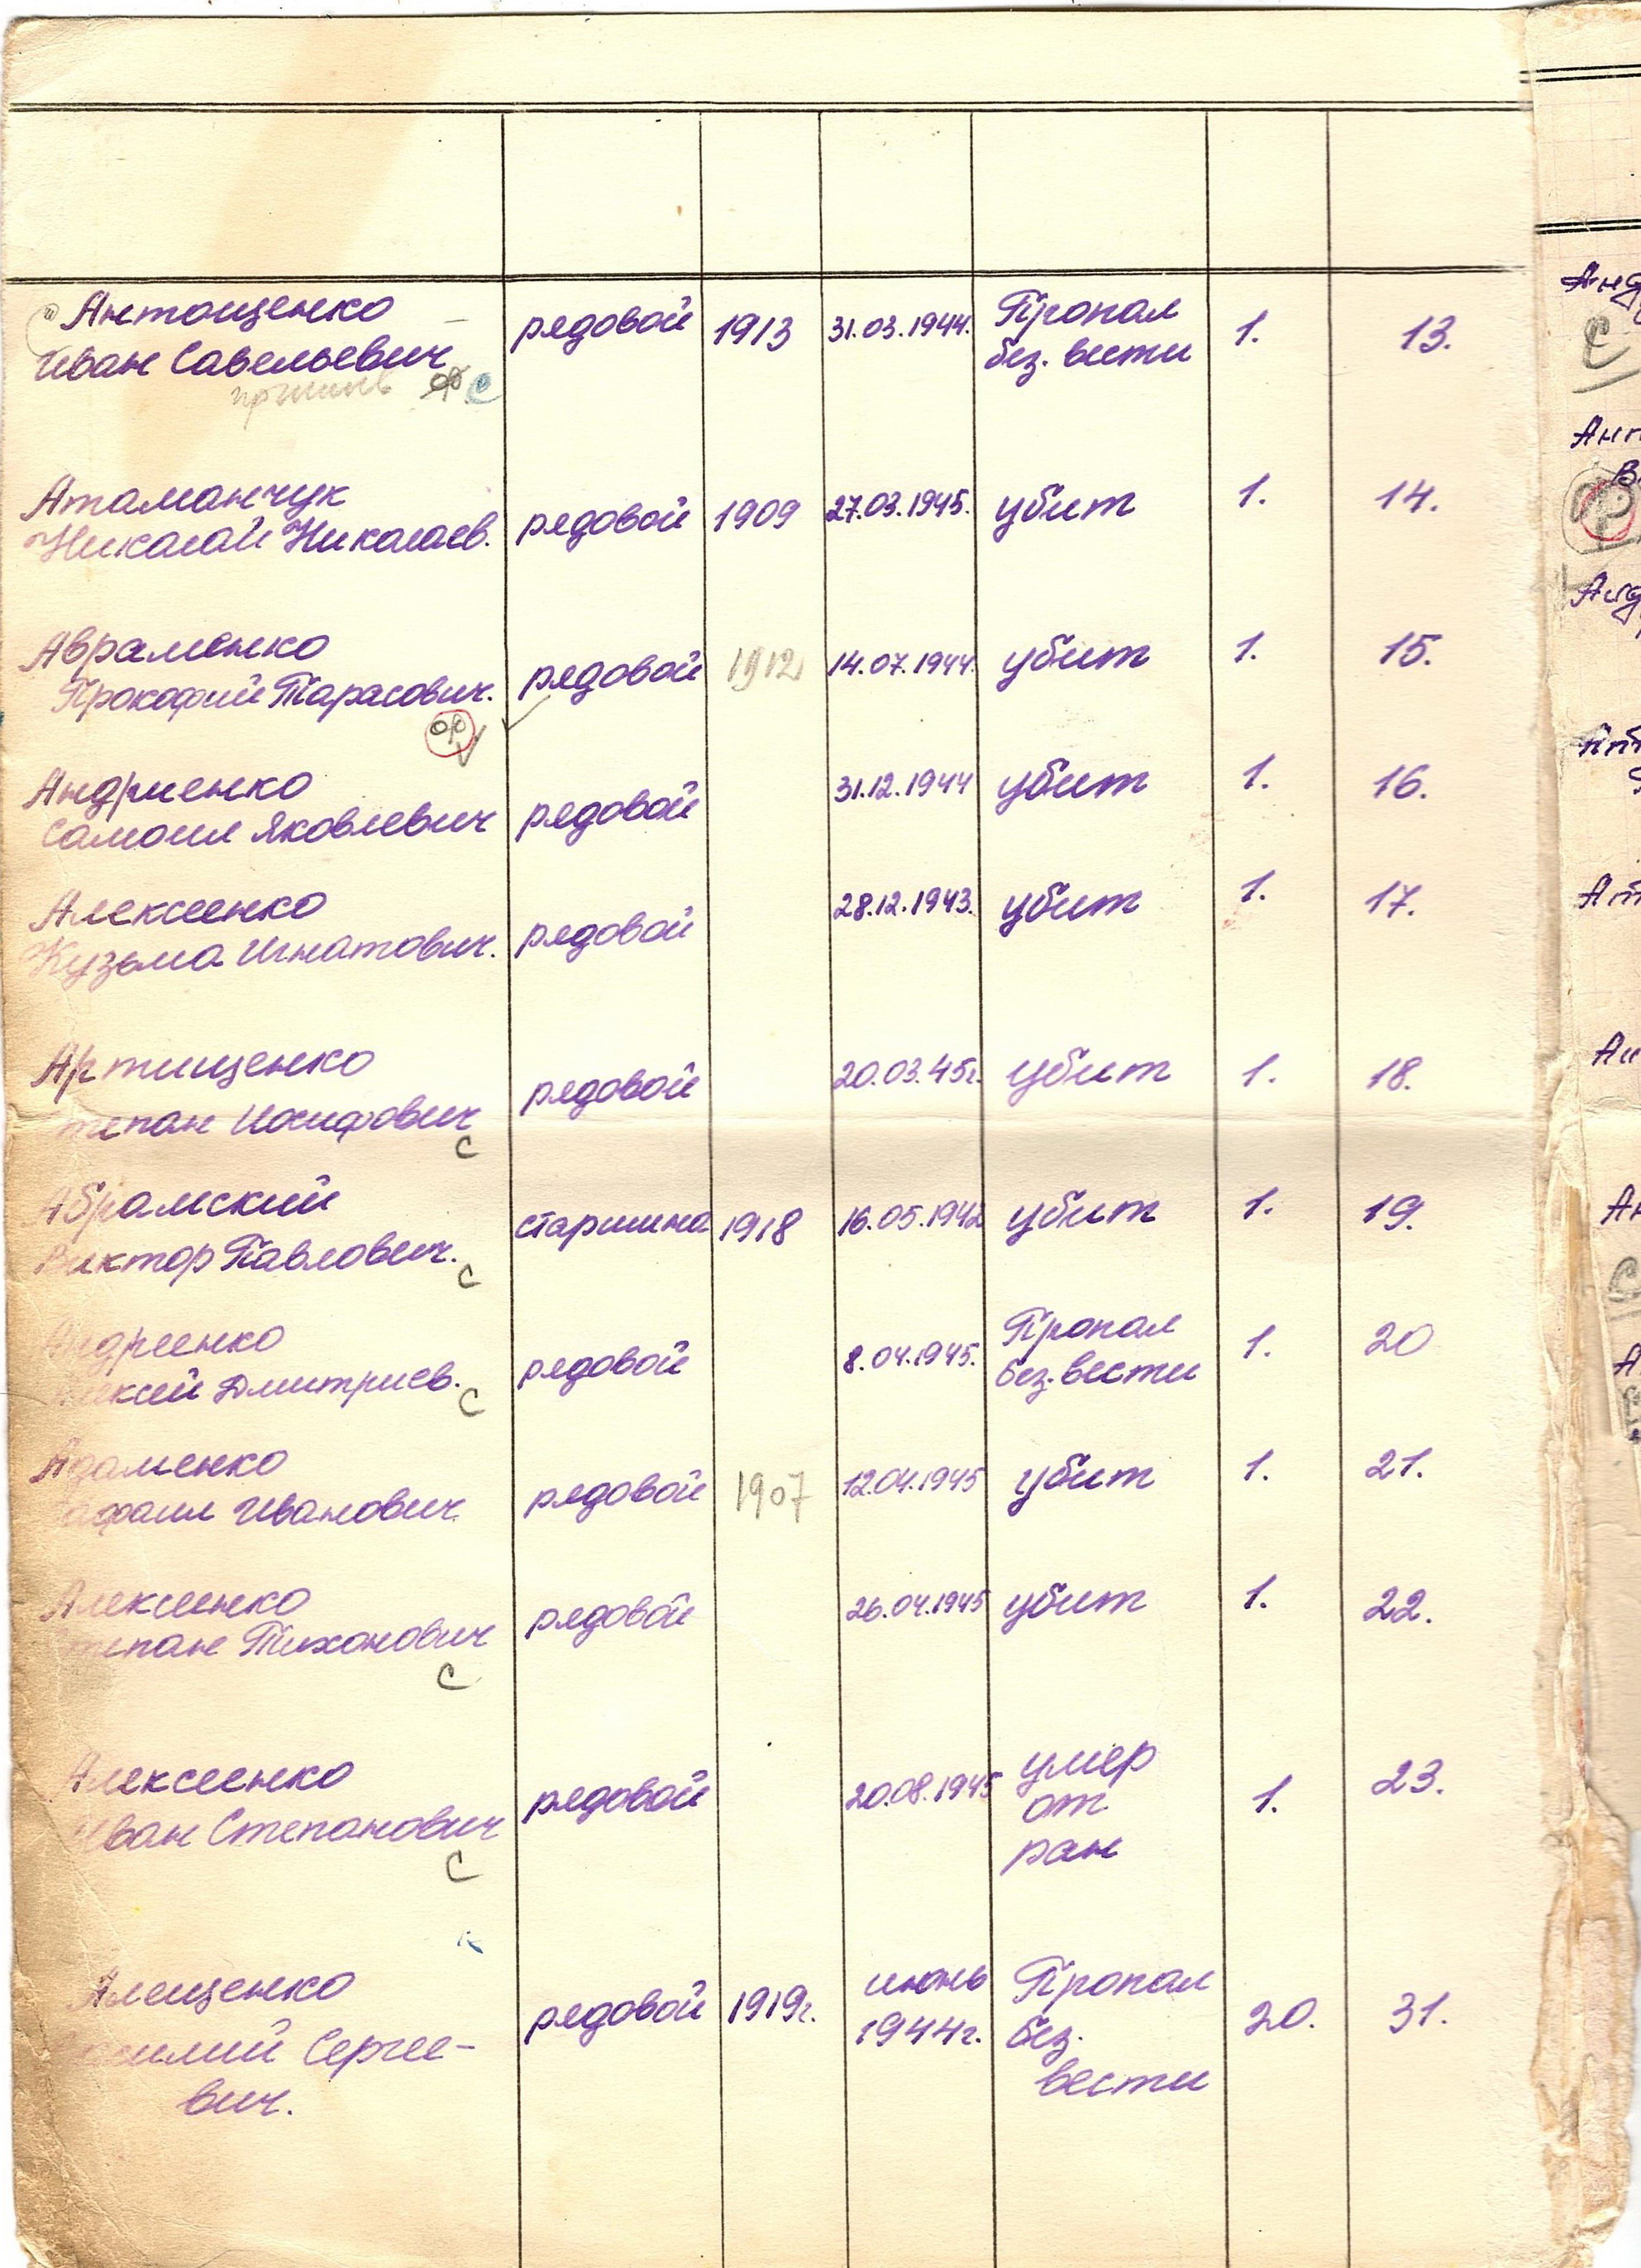 Антощенко
Иван Савельевич рядовой 1913 31.03.1944. Пропал без. вести 1. 13.
Атаманчук
Николай Николаев. рядовой 1909 27.03.1945. убит 1. 14.
Авраменко
Прокофий Тарасович. рядовой 1912 14.07.1944. убит 1. 15.
ор
Андриенко
Самоил Яковлевич рядовой 31.12.1944 убит 1. 16.
Алексеенко
Кузьма Игнатович. рядовой 28.12.1943. убит 1. 17.
Артищенко
Степан Иосифович рядовой 20.03.45г. убит 1. 18.
с
Абрамский
Виктор Павлович. старшина 1918 16.05.1942 убит 1. 19.
с
Андреенко
Алексей Дмитриев. рядовой 8.04.1945. Пропал без. вести 1. 20
с
Адаменко
Рафаил Иванович рядовой 1907 12.04.1945 убит 1. 21.
Алексеенко
Степан Тихонович рядовой 26.04.1945 убит 1. 22.
с
Алексеенко
Иван Степанович рядовой 20.08.1945 умер от ран 1. 23.
с
Алещенко
Василий Сергее-
вич. рядовой 1919г. июнь 1944г. Пропал без. вести 20. 31.